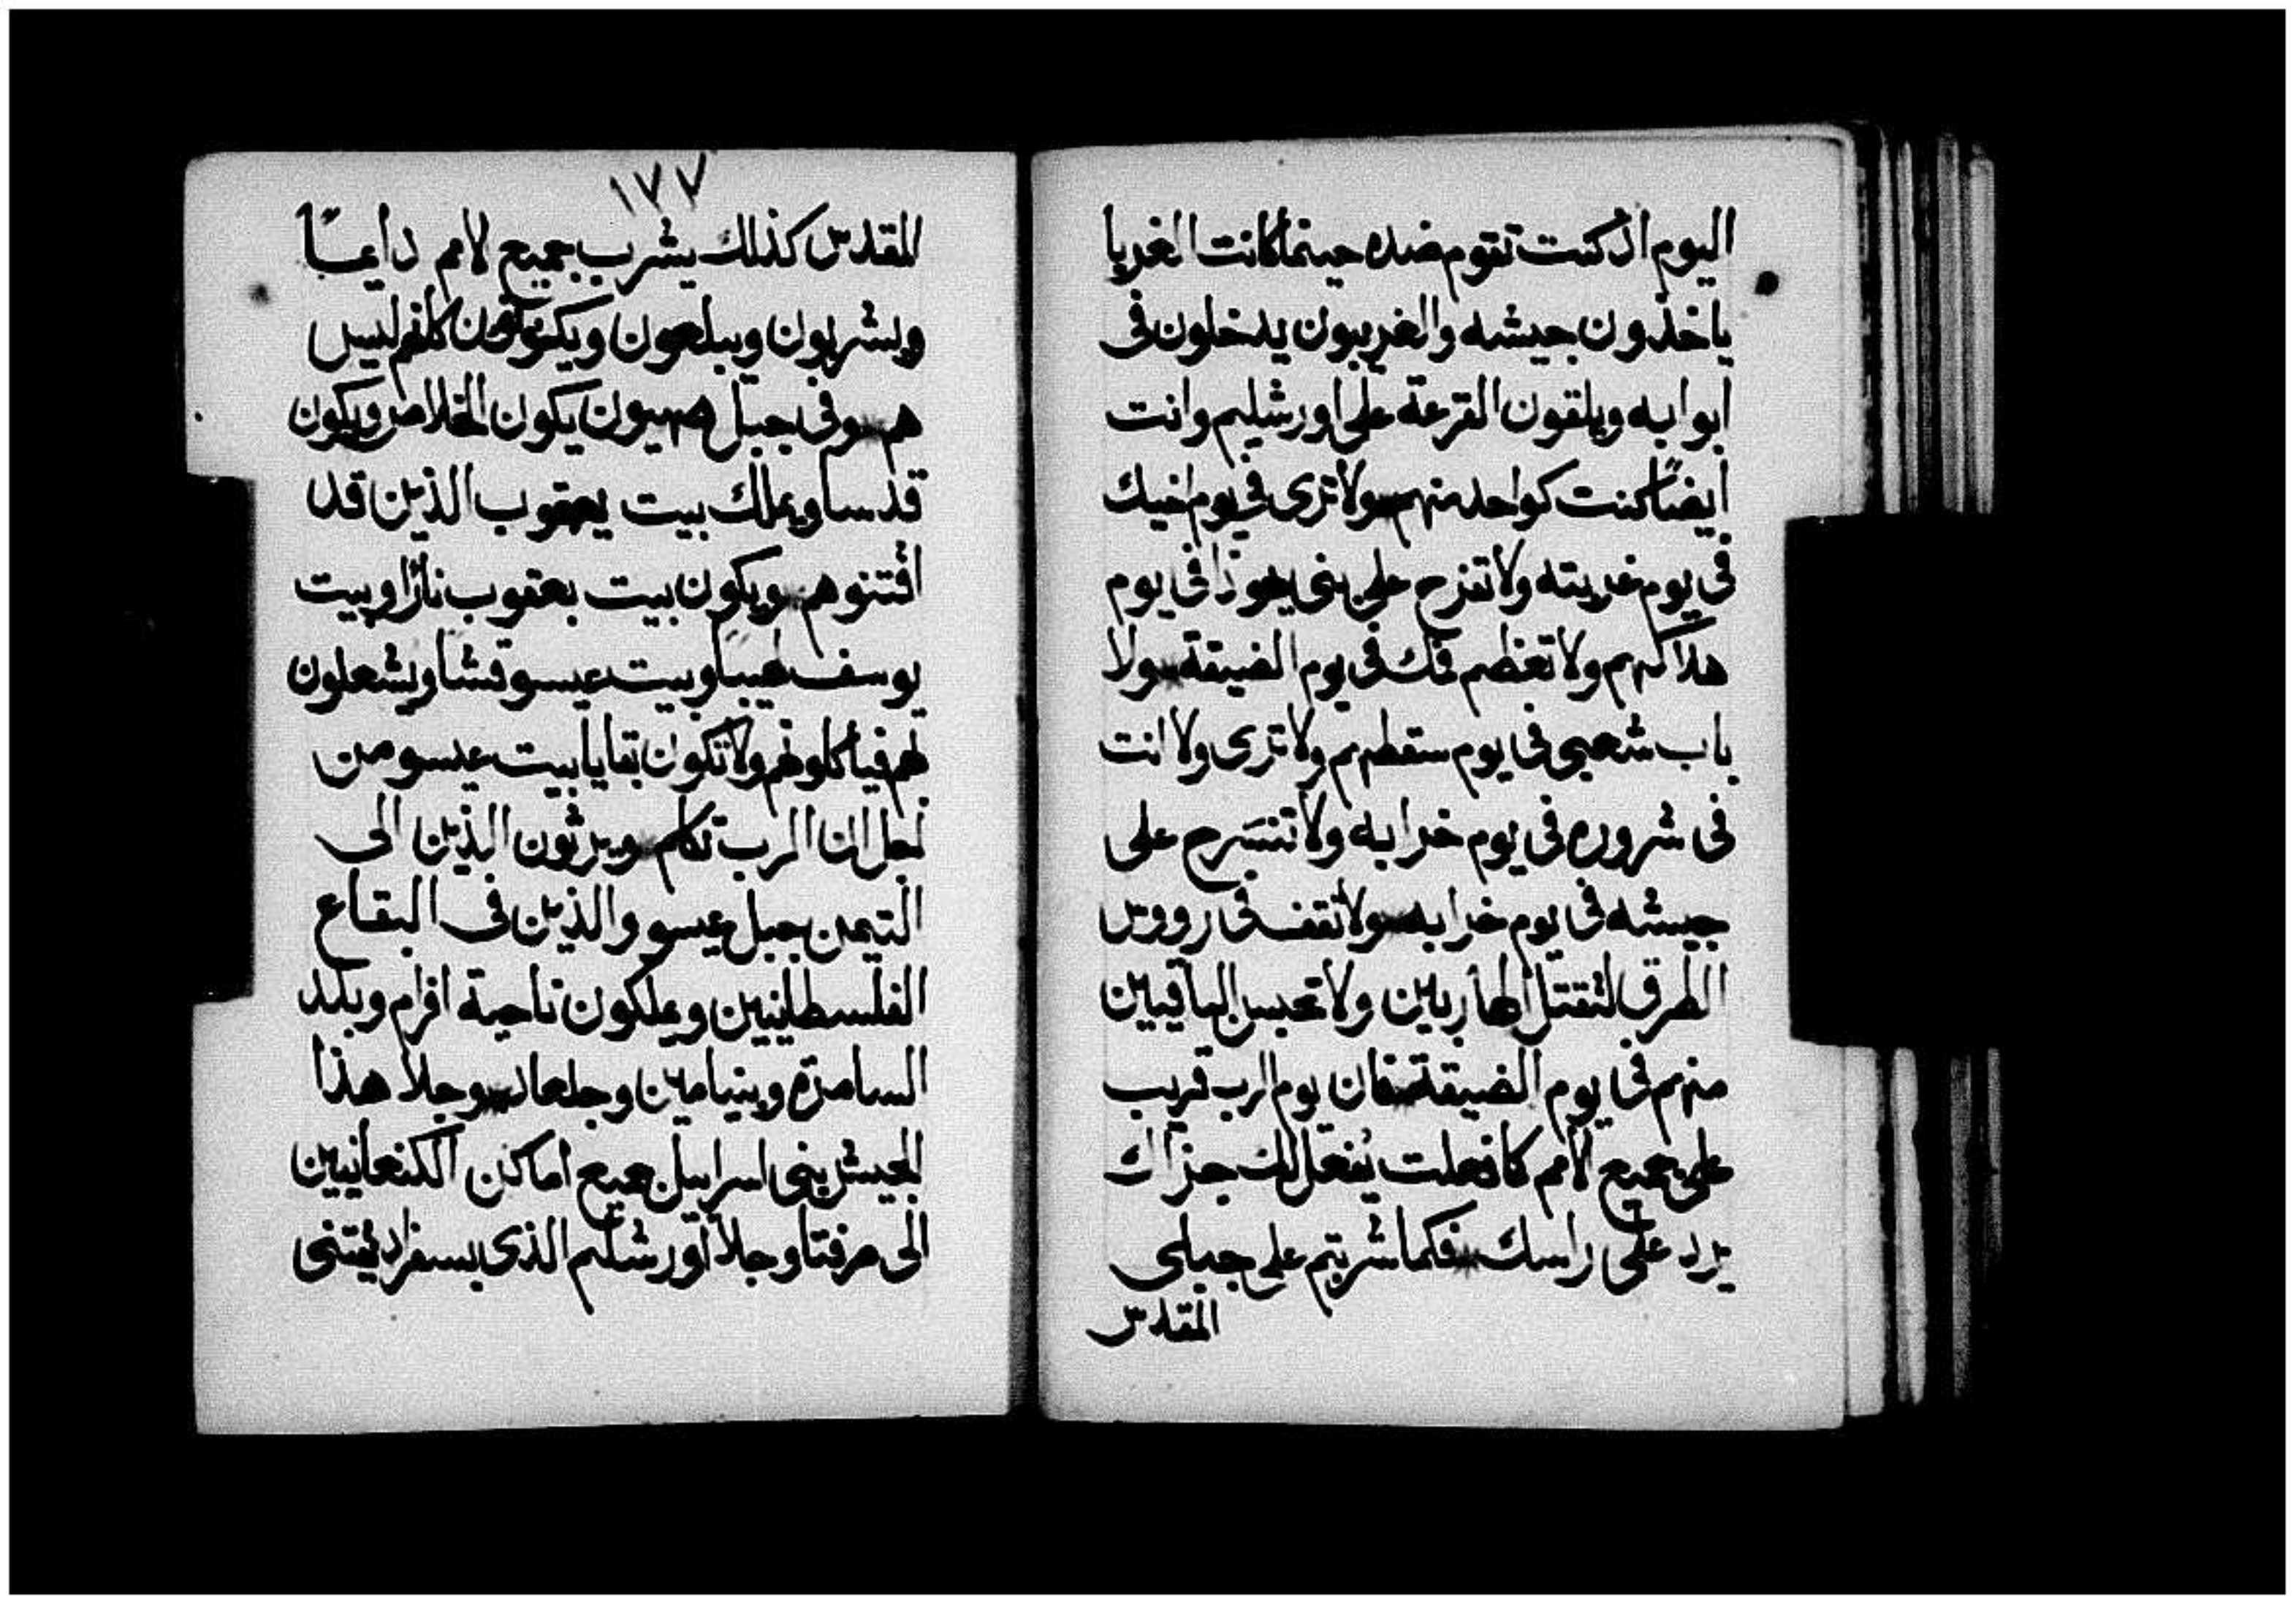 اليوم اذ كنت تقوم ضده حينما كانت الغربا
ياخذون جيشه والغريبون يدخلون فى
ابوابه ويلقون القرعة على اورشليم وانت
ايضًا كنت كواحد منهم ولا ترى فى يوم اخيك
فى يوم غربته ولا تفرح على بنى يهوذا فى يوم
هلاكهم ولا تعظم فمك فى يوم الضيقة ولا
باب شعبى فى يوم سقطهم ولا ترى ولا انت
فى شروره فى يوم خرابه ولا تنسرح على
جيشه فى يوم خرابه ولا تقف فى رووس
الطرق لتقتل الهاربين ولا تحبس الباقيين
منهم فى يوم الضيقة فان يوم الرب قريب
على جميع الامم كما فعلت يُفعل لك جزاك
يرد على راسك فكما شربتم على جبلى
المقدس
١٧٧
المقدس كذلك يشرب جميع الامم دايمًا
ويشربون ويبلعون ويكونون كلهم ليس
هم وفى جبل صهيون يكون الخلاص ويكون
قدسا ويملك بيت يعقوب الذين قد
اقتنوهم ويكون بيت يعقوب نارًا وبيت
يوسف لهيبا وبيت عيسو قشا ويشعلون
لهم فياكلوهم ولا تكون بقايا بيت عيسو من
اجل ان الرب تكلم ويرثون الذين الى
التيمن جبل عيسو والذين فى البقاع
الفلسطانيين ويملكون ناحية افرام وبلد
السامرة وبنيامين وجلعاد وجلا هذا
الجيش بنى اسراييل جميع اماكن الكنعانيين
الى صرفتا وجلا اورشليم الذى بسفراد يقتنى